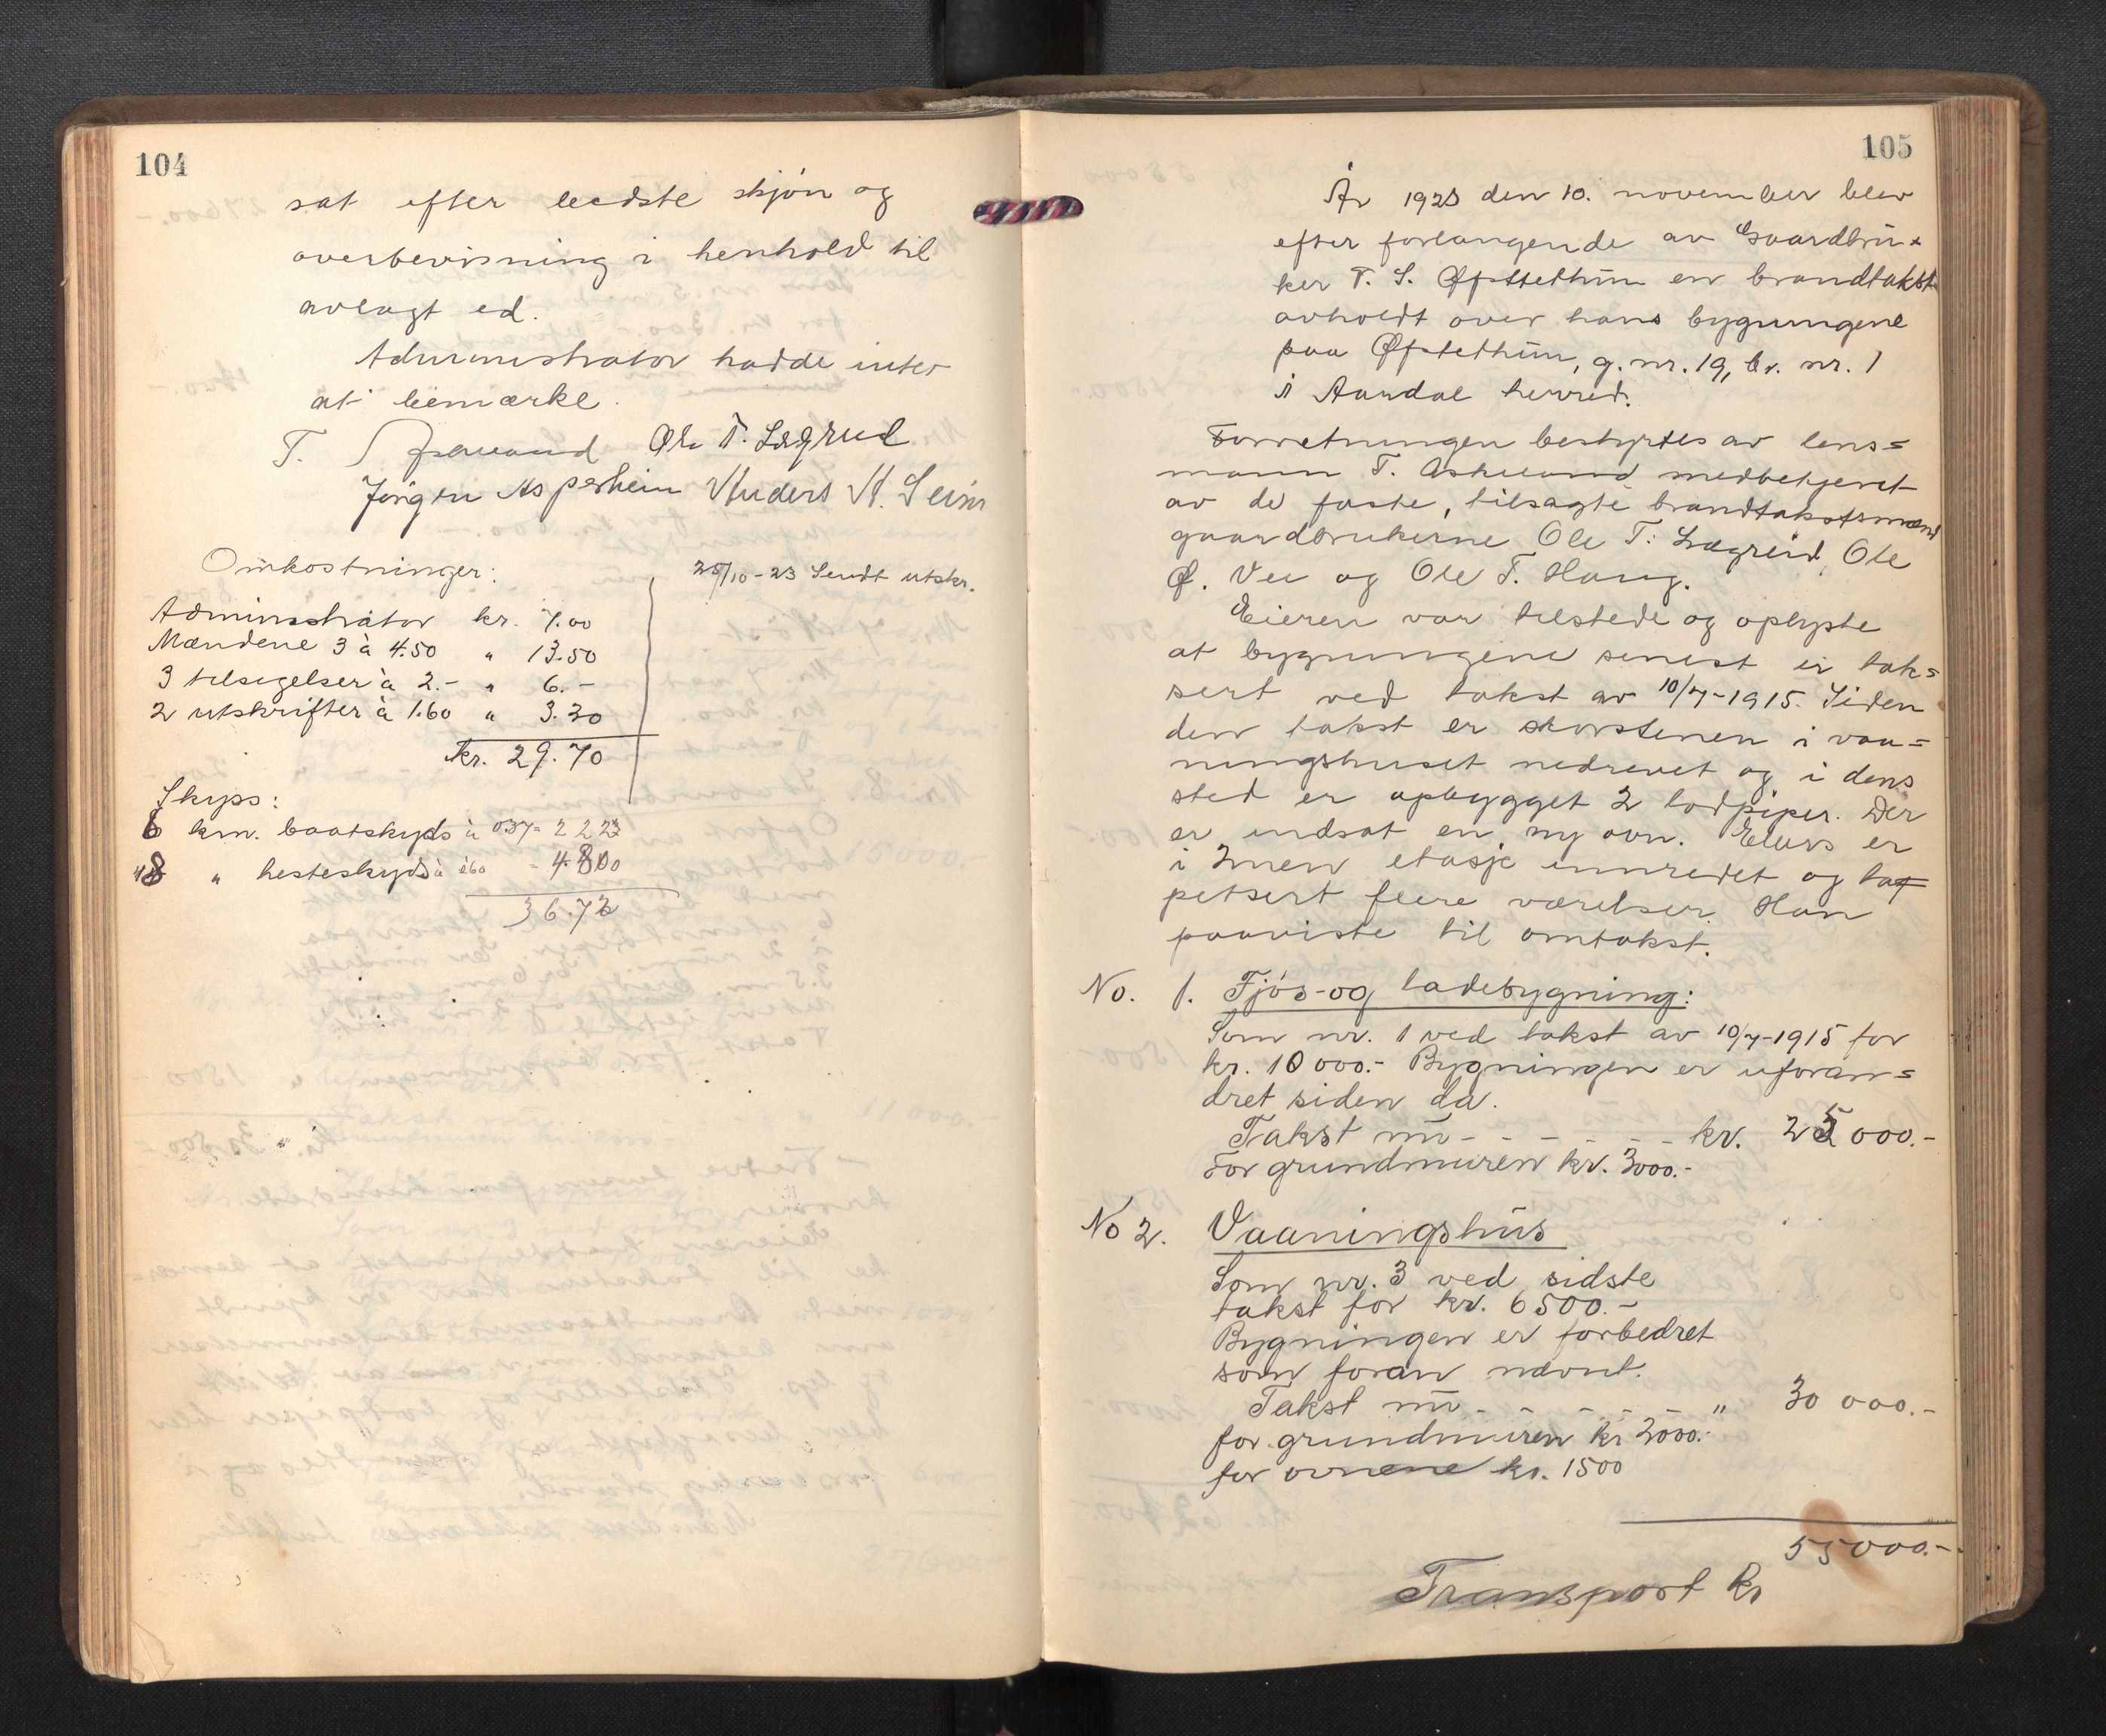 104
sat efter bedste skjøn og
overbevisning i henhold til
avlagt ed.
Administrator hadde intet
at bemærke.
T. Ole T. Lægreid
Jørgen Asperheim Anders A. Seim
Omkostninger:
25/10-23 Sendt utskr.
Administrator kr. 7.00
Mændene 3 à 4.50 " 13.50
3 tilsigelser à 2.- " 6.-
2 utskrifter à 1.60 " 3.20
kr. 29.70
Skyss:
6 km. baatskyds à 037= 2 22
8 " hesteskyds à 060 = 4.80
36.72
105
År 1923 den 10. november blev
efter forlangende av Gaardbru-
ker T. S. Øfstethun en brandtakst
avholdt over hans bygningene
paa Øfstethun, g.nr. 19, br. nr. 1
i Aardal herred.
Forretningen bestyrtes av lens=
mann T. Askelund medbetjent
av de faste, tilsagte brandtakstmænd
gaardbrukerne Ole T. Lægreid, Ole
Ø. Vee og Ole T. Haug.
Eieren var tilstede og oplyste
at bygningene senest er tak=
sert ved takst av 10/7-1915. Siden
den takst er skorstenen i vaa=
ningshuset nedrevet og i dens
sted er opbygget 2 lodpiper. Der
er indsat en ny ovn. Ellers er
i 2nen etasje innredet og ta=
petsert flere værelser. Han
paaviste til omtakst.
No. 1. Fjøs- og ladebygning:
Som nr. 1 ved takst av 10/7-1915 for
kr. 10 000.- Bygningen er uforan=
dret siden da.
Takst nu - - - - - - kr. 25 000.-
For grundmuren kr. 3000.-
No 2. Vaaningshus
Som nr. 3 ved sidste
takst for kr. 6500.-
Bygningen er forbedret
som foran nævnt.
Takst nu - - - - - - " 30 000.-
for grundmuren kr 2000.-
for ovnene kr. 1500
55000.-
Transport kr